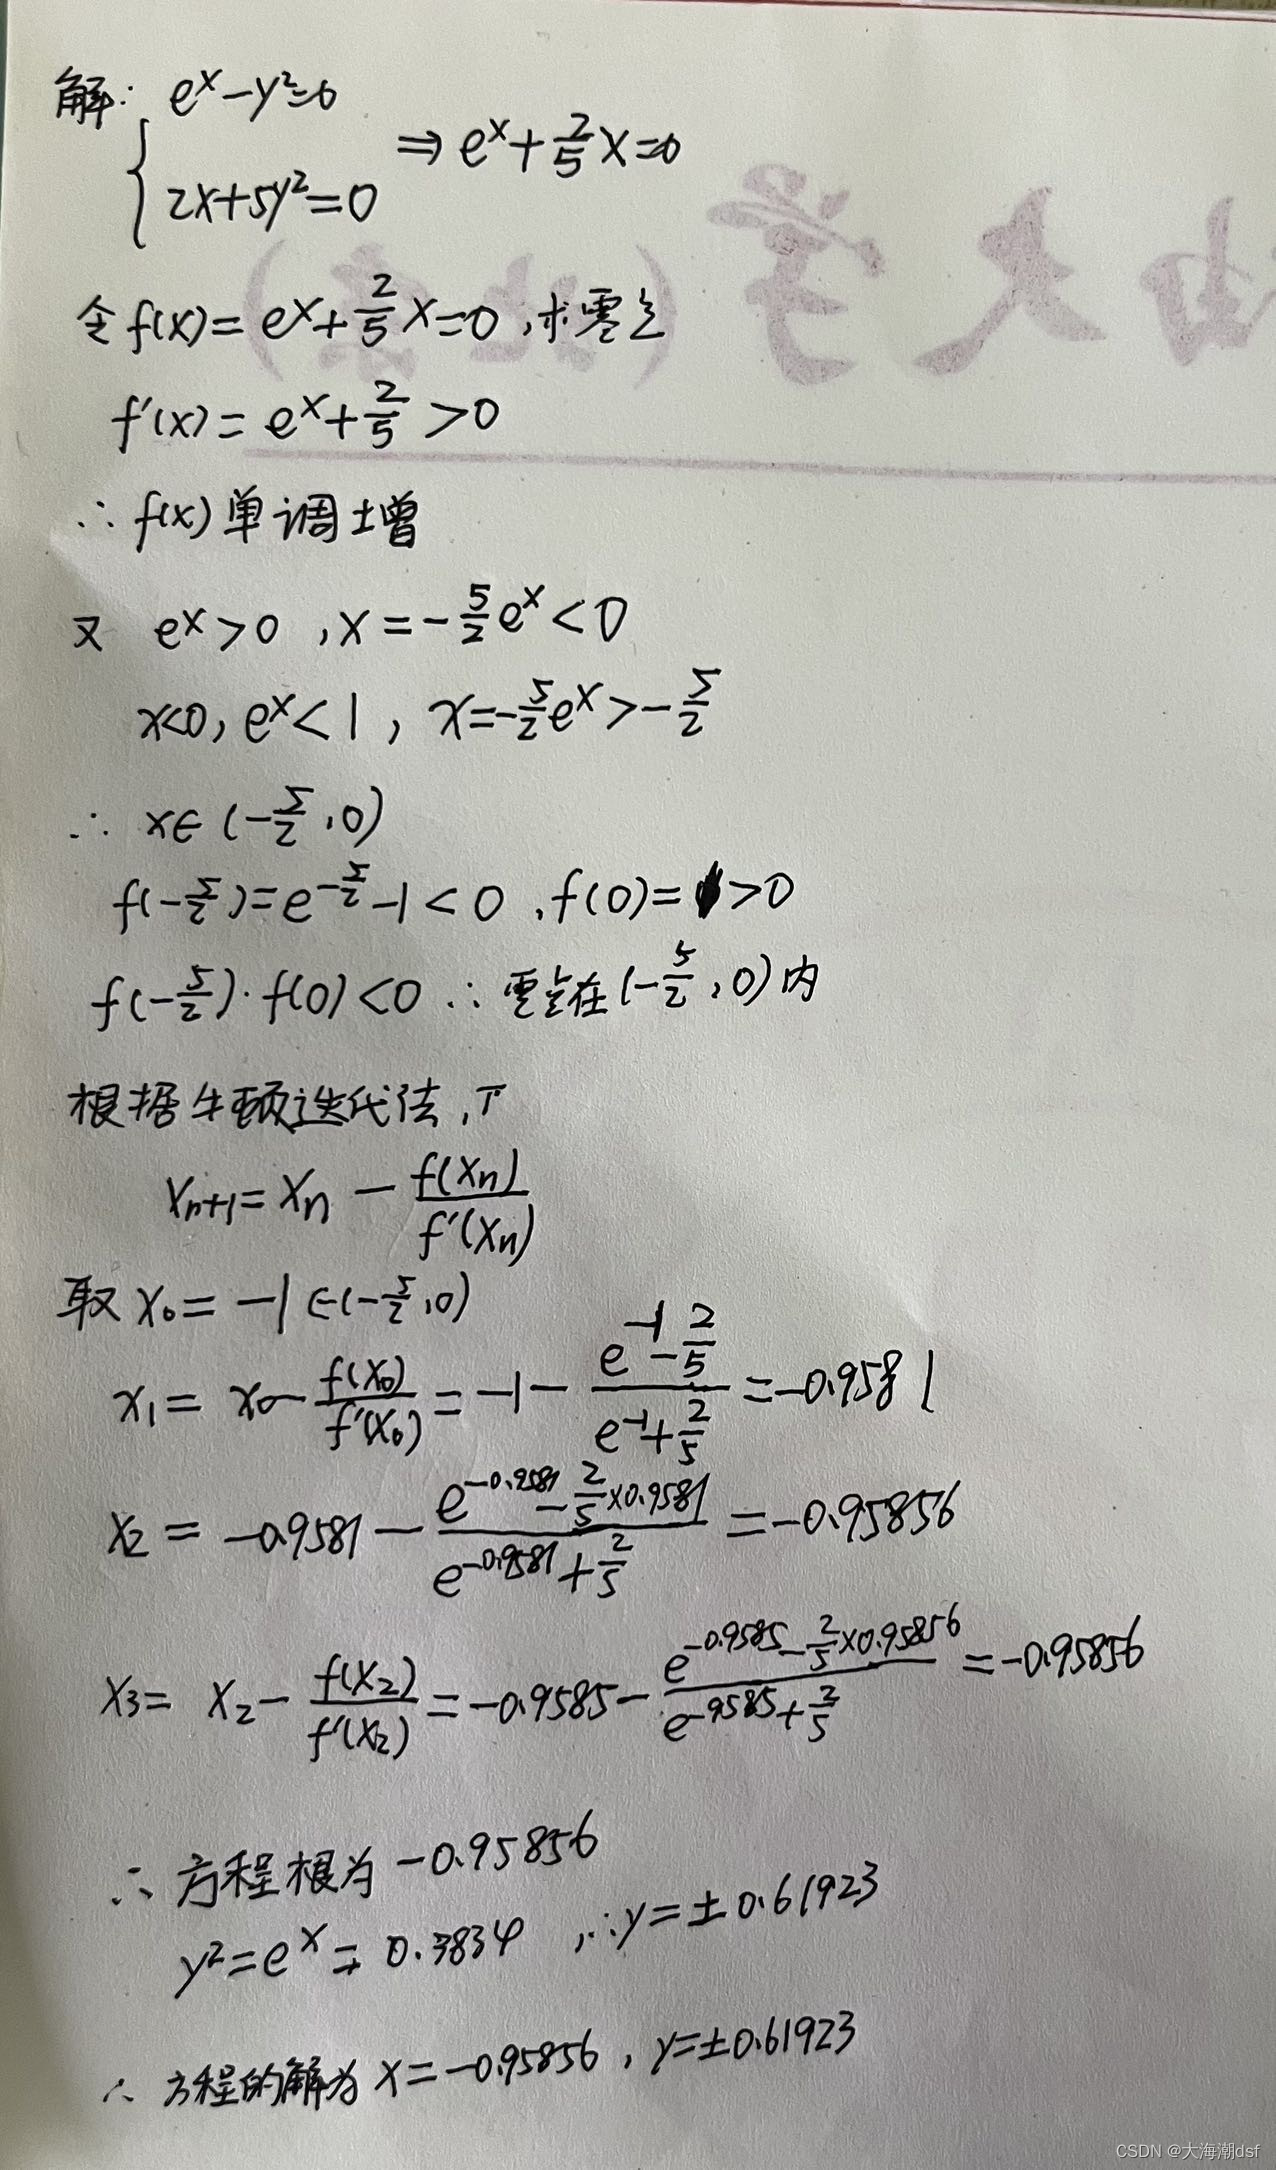 解: e^x-y²=0
⇒ e^x+2/5 x=0
2x+5y²=0
令f(x)=e^x+2/5 x=0,求零点
f'(x)=e^x+2/5>0
∴f(x)单调增
又 e^x>0,x=-5/2 e^x<0
x<0,e^x<1,x=-5/2 e^x>-5/2
∴ x∈(-5/2,0)
f(-5/2)=e^(-5/2)-1<0,f(0)=1>0
f(-5/2)·f(0)<0 ∴零点在(-5/2,0)内
根据牛顿迭代法,
x_{n+1}=x_n - f(x_n)/f'(x_n)
取x₀=-1∈(-5/2,0)
x₁=x₀-f(x₀)/f'(x₀)=-1-(e^(-1)-2/5)/(e^(-1)+2/5)=-0.9581
x₂=-0.9581-(e^(-0.9581)-2/5×0.9581)/(e^(-0.9581)+2/5)=-0.95856
x₃=x₂-f(x₂)/f'(x₂)=-0.9585-(e^(-0.9585)-2/5×0.95856)/(e^(-9585)+2/5)=-0.95856
∴方程根为-0.95856
y²=e^x=0.3834,∴y=±0.61923
∴方程的解为x=-0.95856,y=±0.61923
CSDN @大海潮dsf